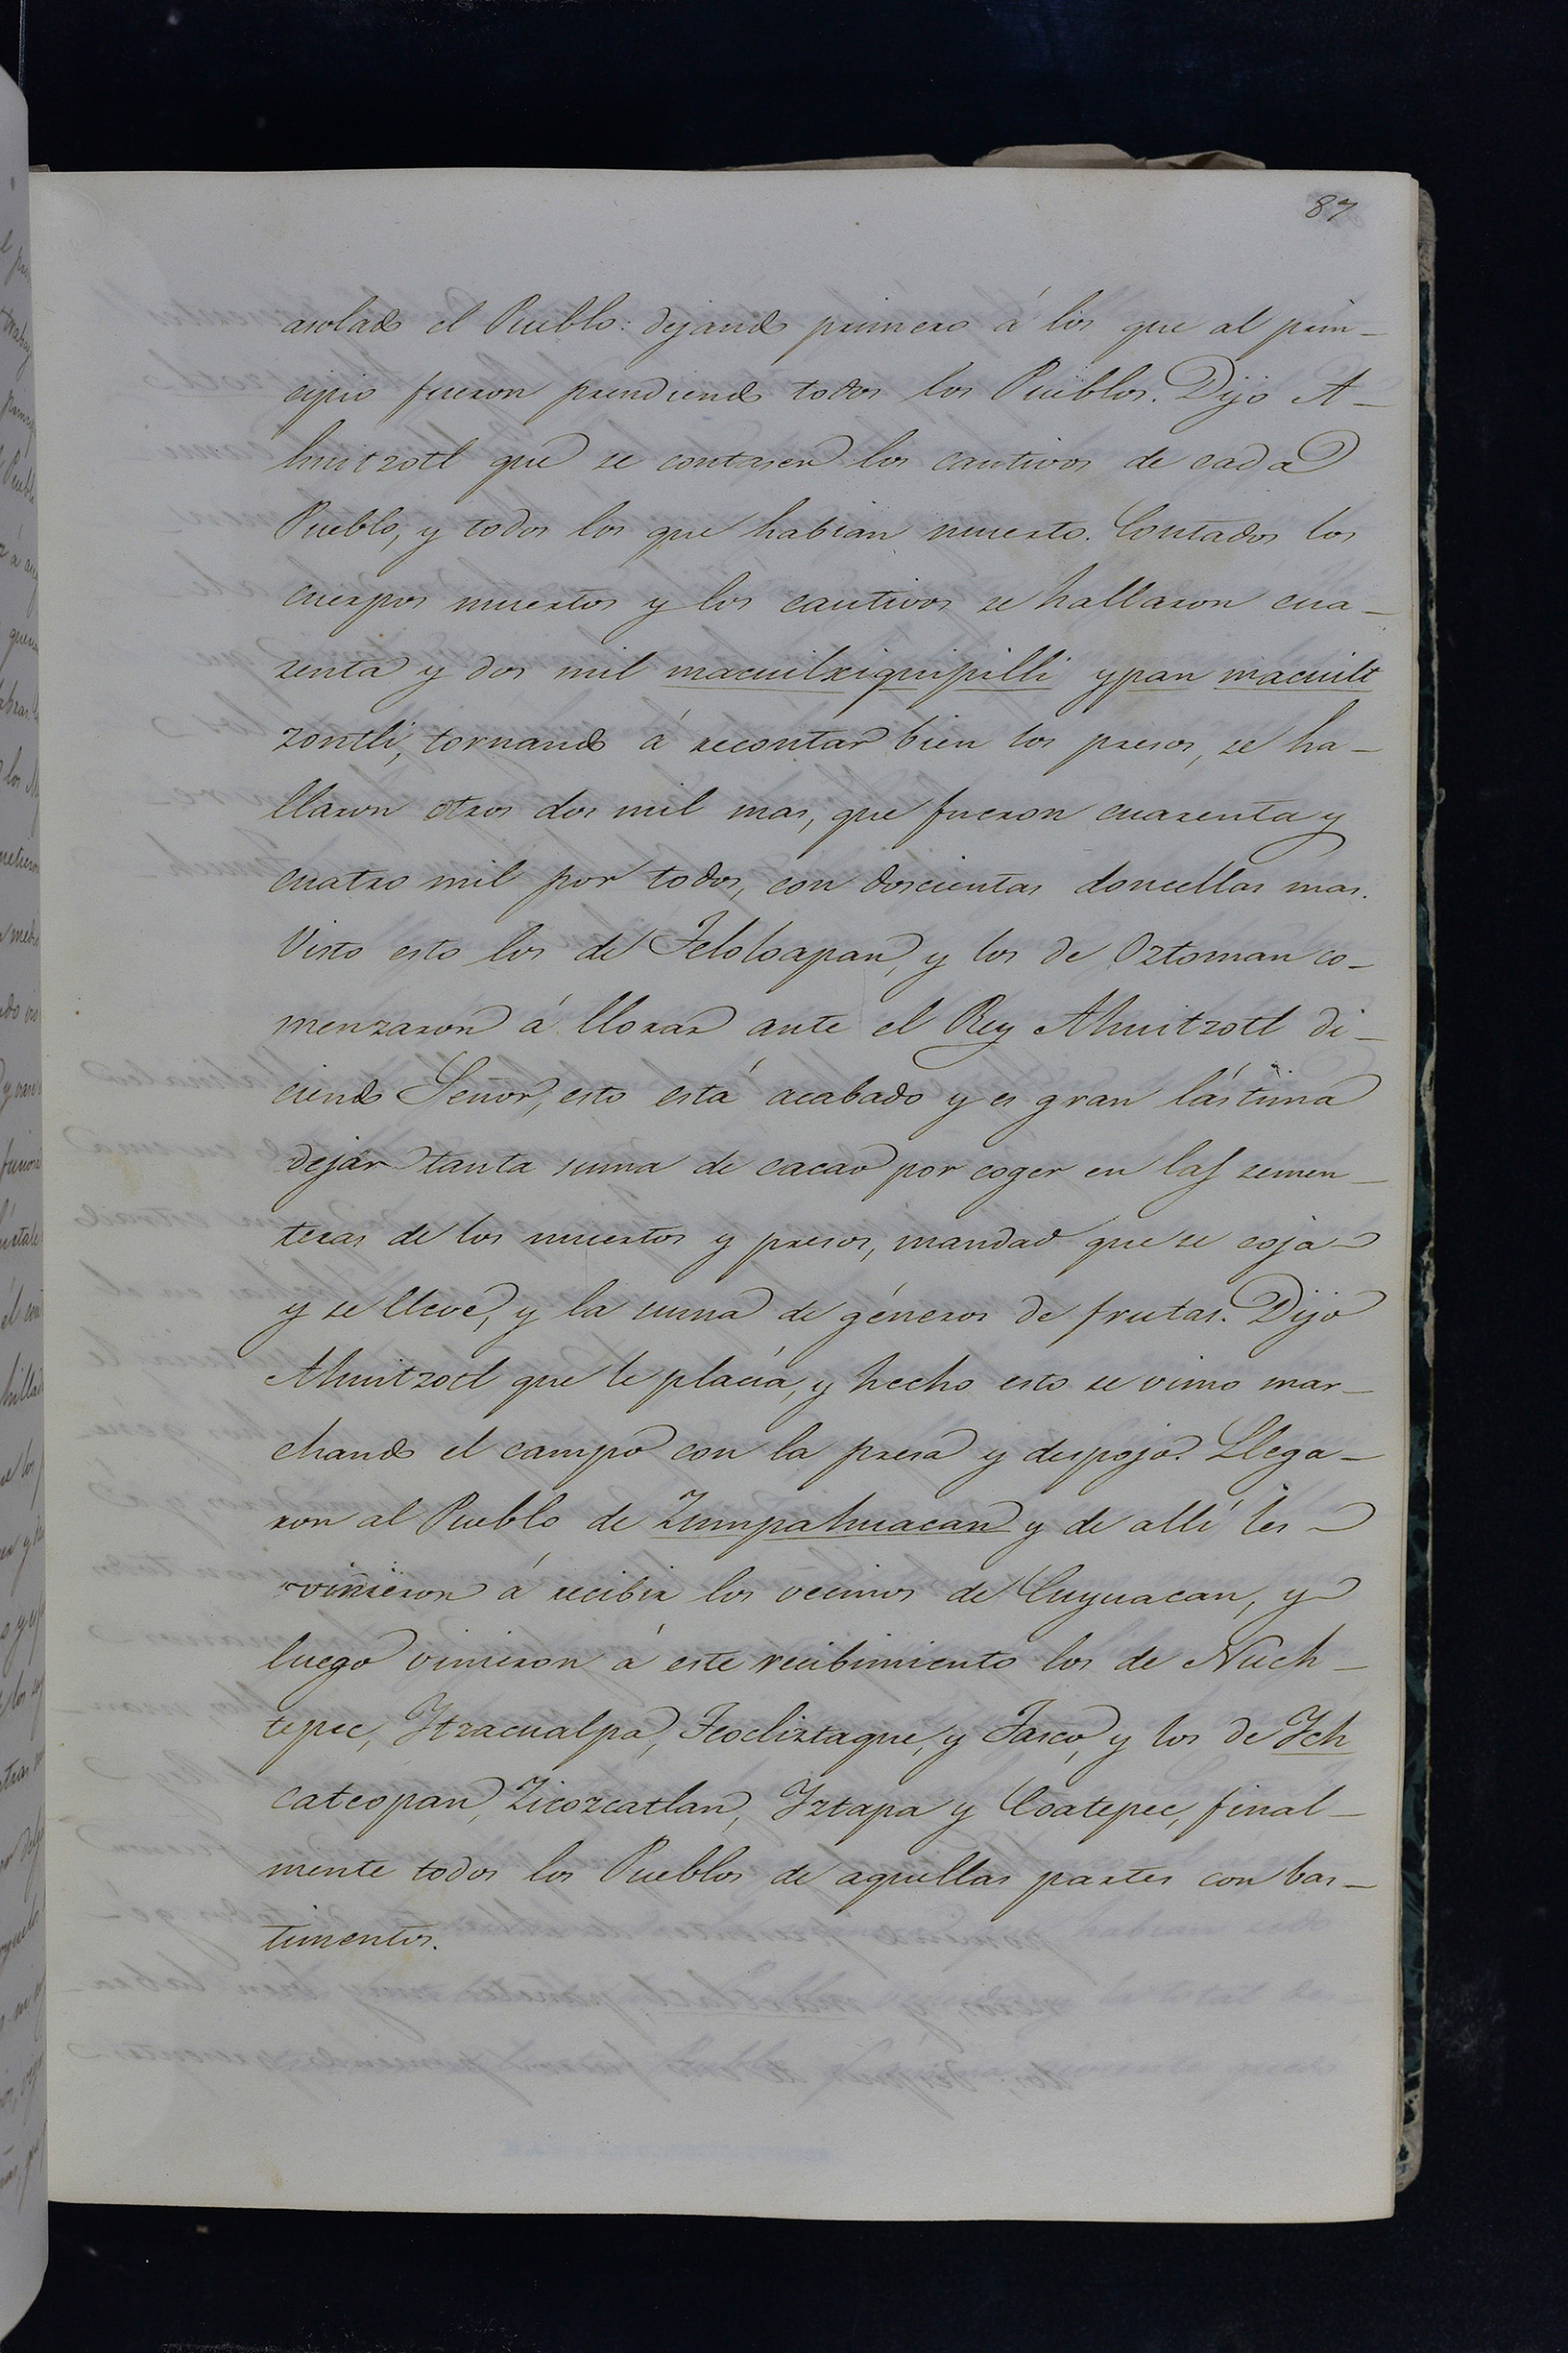 87
asolado el Pueblo: dejando primero á los que al prin-
cipio fueron prendiendo todos los Pueblos. Dijo A-
huitzotl que se contasen los cautivos de cada
Pueblo, y todos los que habian muerto. Contados los
cuerpos muertos y los cautivos se hallaron cua-
renta y dos mil macuilxiquipilli ypan macuilt
zontli, tornando á recontar bien los presos, se ha-
llaron otros dos mil mas, que fueron cuarenta y
cuatro mil por todos, con doscientas doncellas mas.
Visto esto los de Teloloapan, y los de Oztoman co-
menzaron á llorar ante el Rey Ahuitzotl di-
ciendo Señor, esto está acabado y es gran lástima
dejar tanta suma de cacao por coger en las semen-
teras de los muertos y presos, mandad que se coja
y se lleve, y la suma de géneros de frutas. Dijo
Ahuitzotl que le placia, y hecho esto se vino mar-
chando el campo con la presa y despojo. Llega-
ron al Pueblo de Zumpahuacan y de allí les
vinieron á recibir los vecinos de Cuyuacan, y
luego vinieron á este recibimiento los de Nuch-
tepec, Ytzacualpa, Teocliztaque, y Tasco, y los de Ych
cateopan, Zicozcatlan, Yztapa y Coatepec, final-
mente todos los Pueblos de aquellas partes con bas-
timentos.